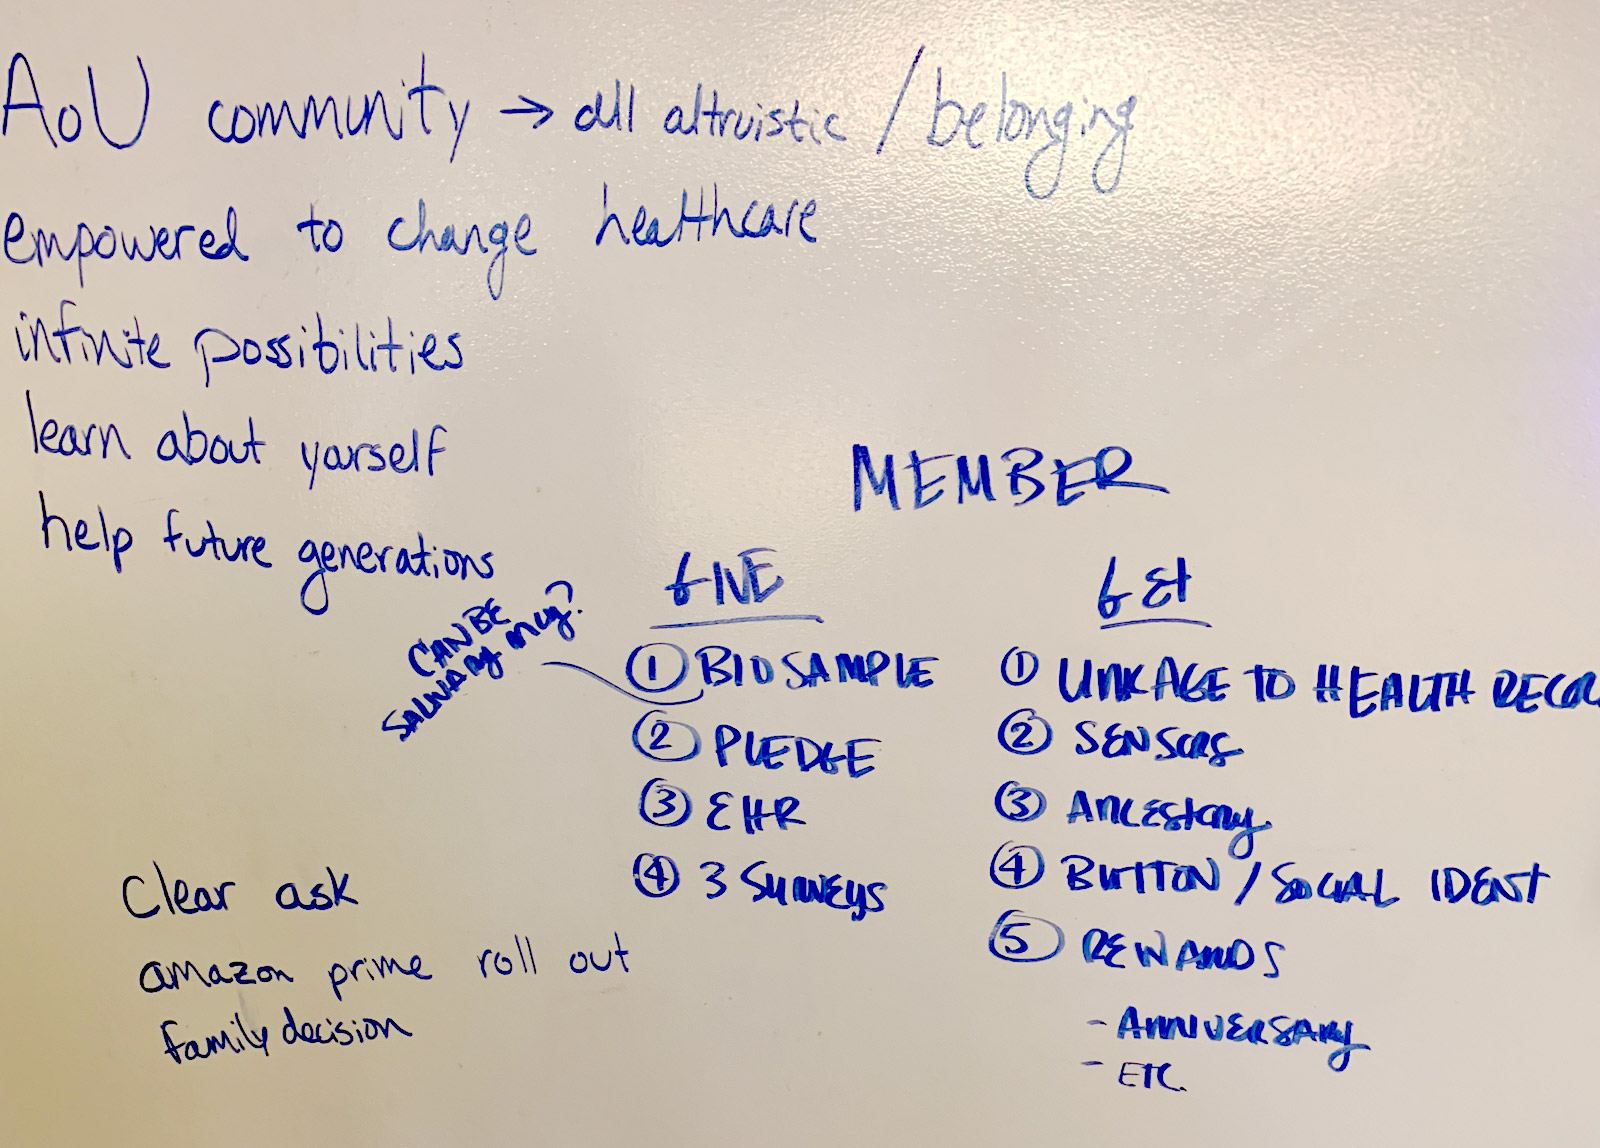 AoU community → all altruistic / belonging
empowered to change healthcare
infinite possibilities
learn about yourself
help future generations
MEMBER
GIVE
CAN BE
① BIOSAMPLE
② PLEDGE
③ EHR
④ 3 SURVEYS
GET
① LINKAGE TO HEALTH RECOR
② SENSORS
③ ANCESTORY
④ BUTTON / SOCIAL IDENT
⑤ REWARDS
- ANNIVERSARY
- ETC.
Clear ask
amazon prime roll out
family decision